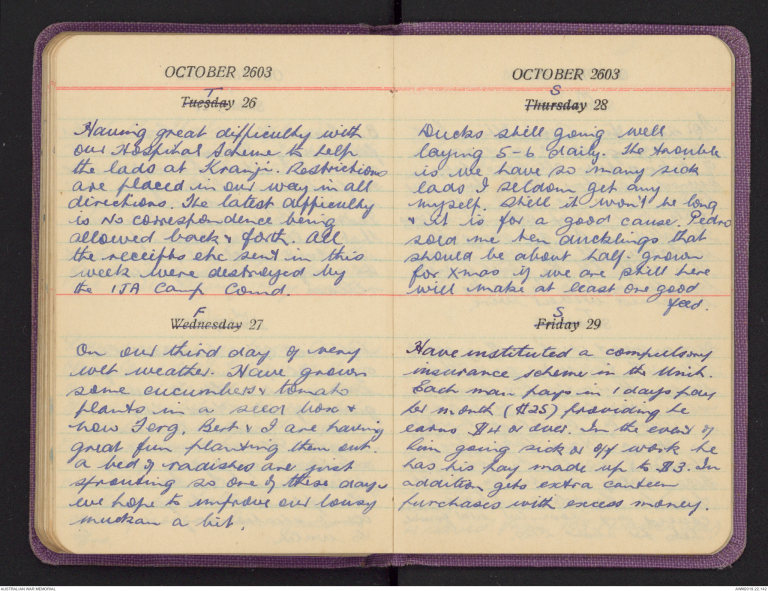 OCTOBER 2603
T
Tuesday 26
Having great difficulty with
our Hospital Scheme to help
the lads at Kranji. Restrictions
are placed in our way in all
directions. The latest difficulty
is no correspondence being
allowed back & forth. All
the receipts etc sent in this
week were destroyed by
the IJA Camp Comd.
F
Wednesday 27
On our third day of very
wet weather. Have grown
some cucumbers & tomato
plants in a seed box &
now Ferg, Bert & I are having
great fun planting them out.
A bed of radishes are just
sprouting so one of these days
we hope to improve our lousy
muckan a bit.
OCTOBER 2603
S
Thursday 28
Ducks still going well
laying 5-6 daily. The trouble
is we have so many sick
lads I seldom get any
myself. Still it won't be long
& it is for a good cause. Pedro
sold me ten ducklings that
should be about half grown
for Xmas if we are still here
will make at least one good
feed.
S
Friday 29
Have instituted a compulsory
insurance scheme in the Unit.
Each man pays in 1 days pay
per month ($25) providing he
earns $4 or over. In the event of
him going sick or off work he
has his pay made up to $3. In
addition gets extra canteen
purchases with excess money.
AUSTRALIAN WAR MEMORIAL